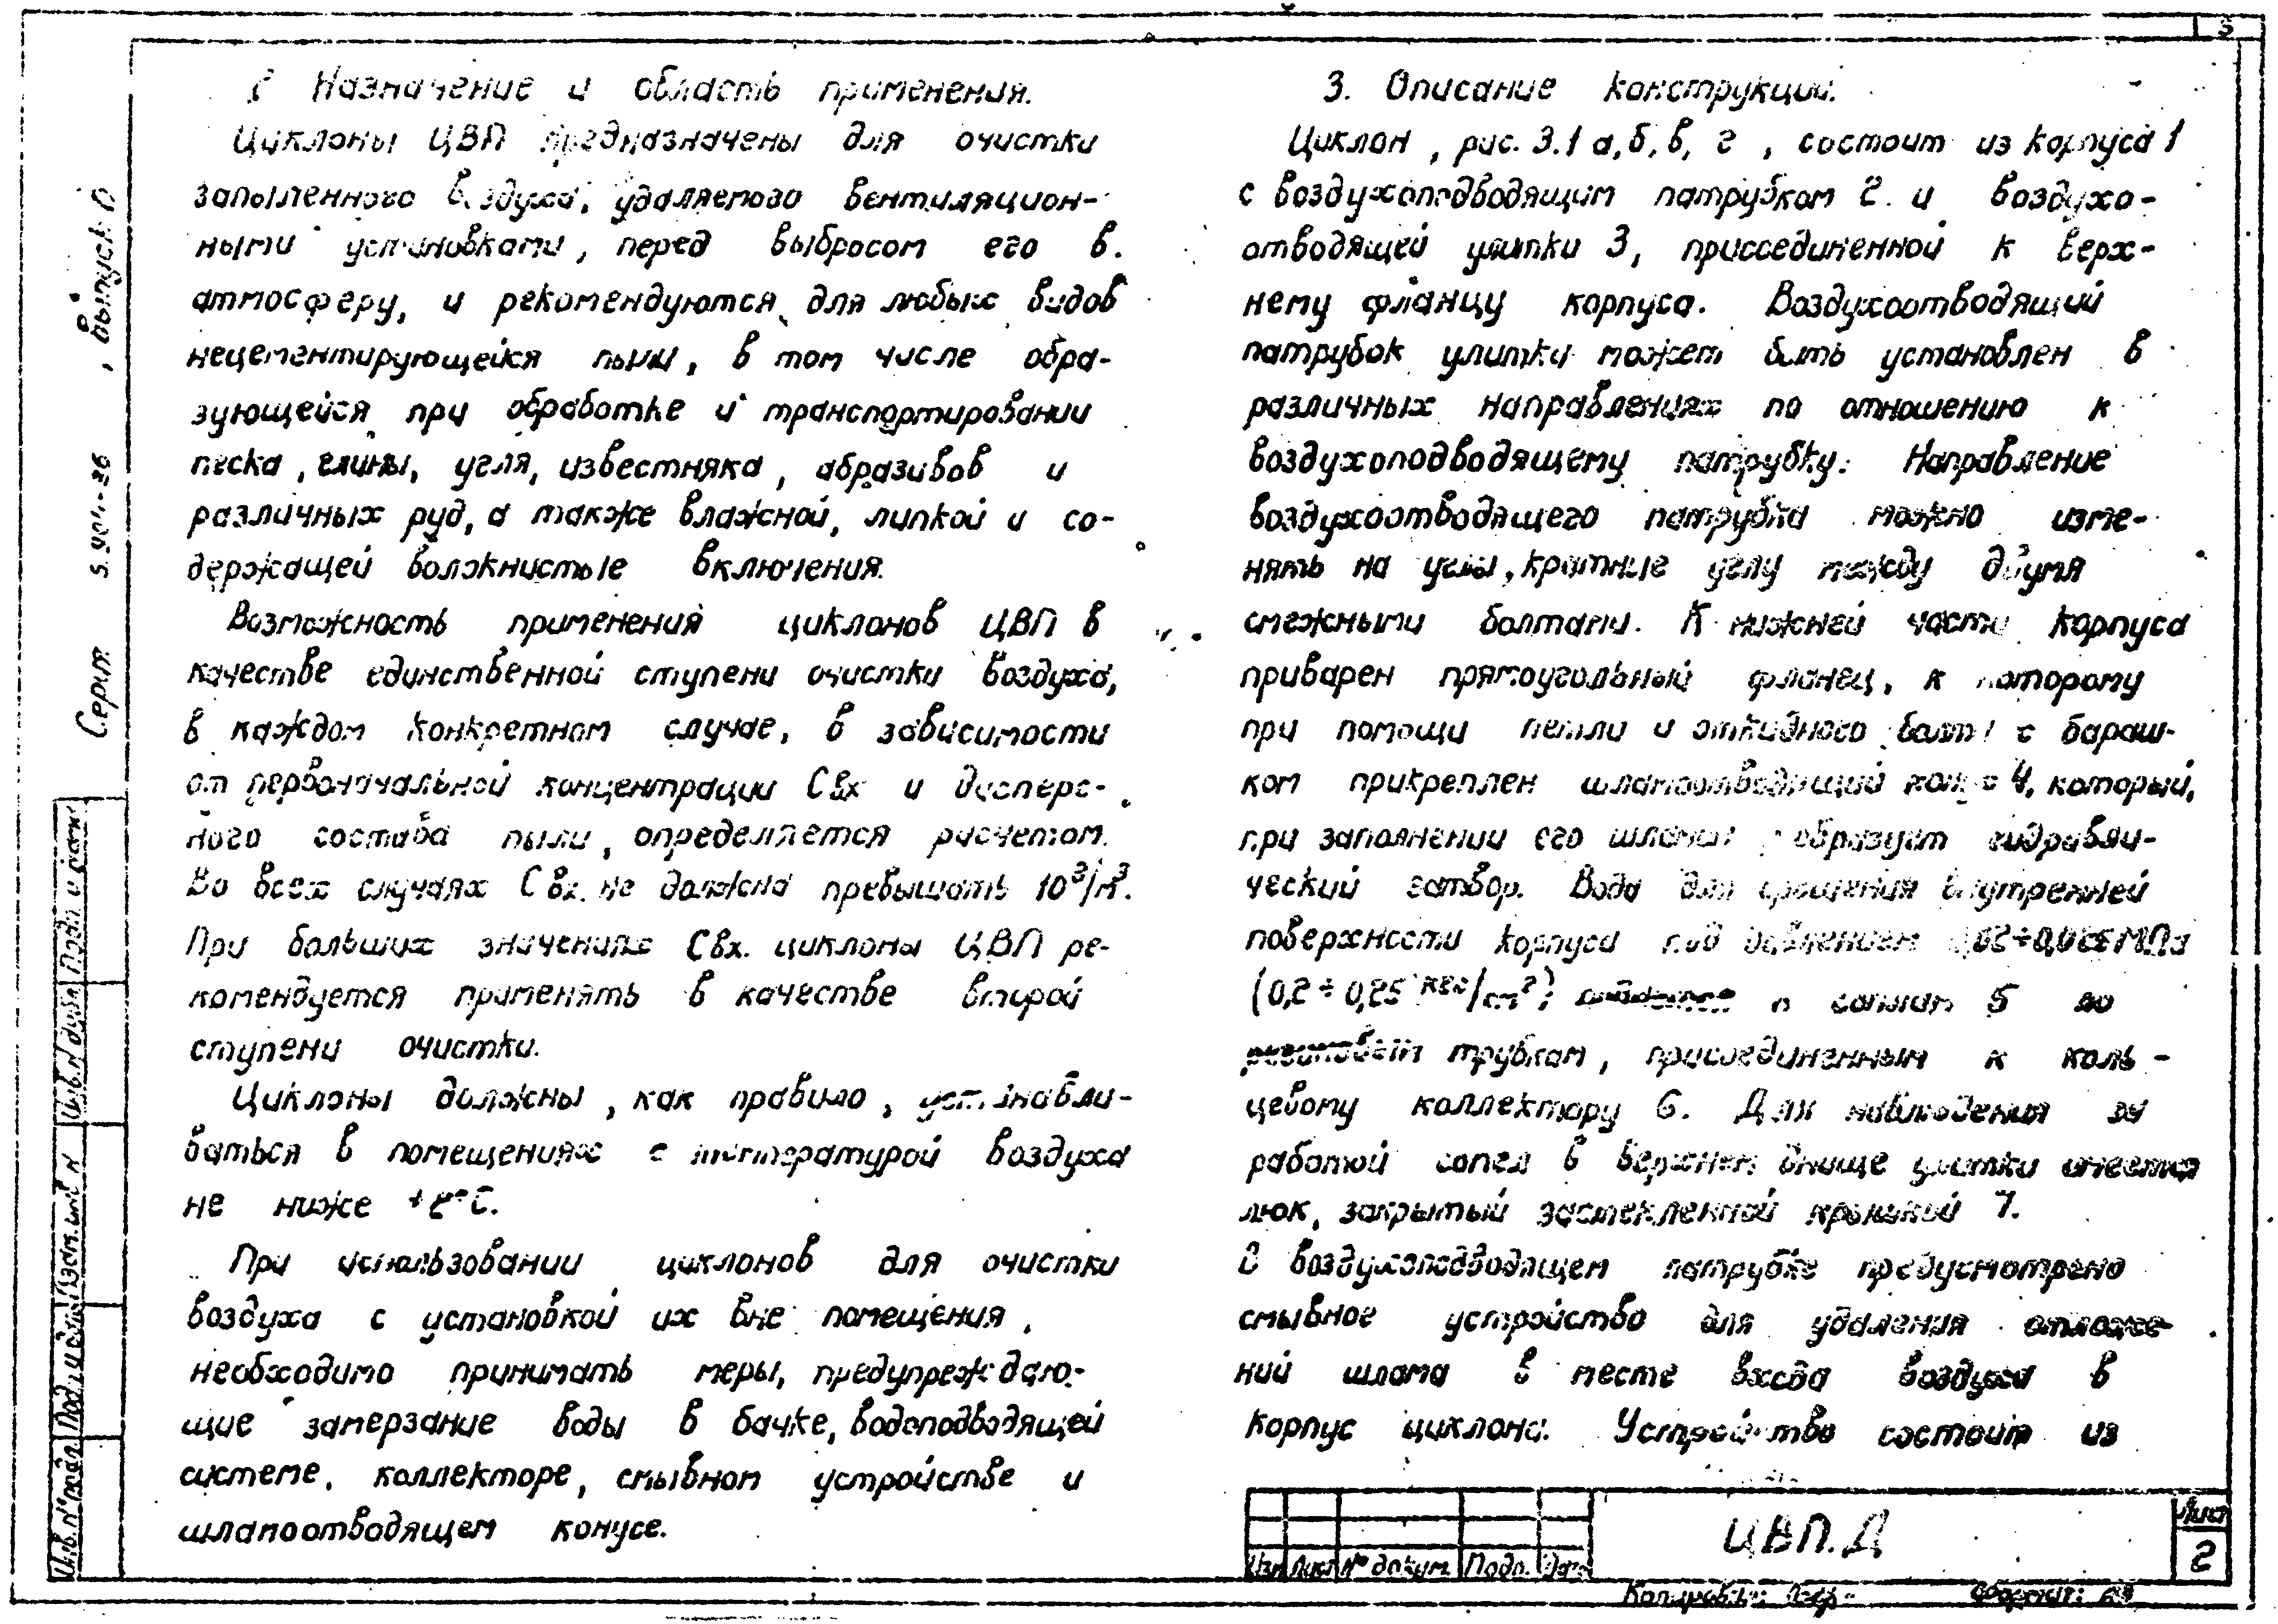 3
2 Назначение и область применения.
Циклоны ЦВП предназначены для очистки
запыленного воздуха, удаляемого вентиляцион-
ными установками, перед выбросом его в
атмосферу, и рекомендуются для любых видов
нецементирующейся пыли, в том числе обра-
зующейся при обработке и транспортировании
песка, глины, угля, известняка, абразивов и
различных руд, а также влажной, липкой и со-
держащей волокнистые включения.
Возможность применения циклонов ЦВП в
качестве единственной ступени очистки воздуха,
в каждом конкретном случае, в зависимости
от первоначальной концентрации Свх и дисперс-
ного состава пыли, определяется расчетом.
Во всех случаях Свх. не должна превышать 10 г/м³.
При больших значениях Свх. циклоны ЦВП ре-
комендуется применять в качестве второй
ступени очистки.
Циклоны должны, как правило, устанавли-
ваться в помещениях с температурой воздуха
не ниже +2°С.
При использовании циклонов для очистки
воздуха с установкой их вне помещения,
необходимо принимать меры, предупреждаю-
щие замерзание воды в бачке, водоподводящей
системе, коллекторе, смывном устройстве и
шламоотводящем конусе.
3. Описание конструкции.
Циклон, рис. 3.1 а, б, в, г, состоит из корпуса 1
с воздухоподводящим патрубком 2 и воздухо-
отводящей улитки 3, присоединенной к верх-
нему фланцу корпуса. Воздухоотводящий
патрубок улитки может быть установлен в
различных направлениях по отношению к
воздухоподводящему патрубку. Направление
воздухоотводящего патрубка можно изме-
нять на углы, кратные углу между двумя
смежными болтами. К нижней части корпуса
приварен прямоугольный фланец, к которому
при помощи петли и откидного болта с бараш-
ком прикреплен шламоотводящий конус 4, который,
при заполнении его шламом, образует гидравли-
ческий затвор. Вода для орошения внутренней
поверхности корпуса под давлением 0,02÷0,025 МПа
(0,2÷0,25 кгс/см²) к соплам 5 по
трубкам, присоединенным к коль-
цевому коллектору 6. Для наблюдения за
работой сопел в верхнем днище улитки имеется
люк, закрытый застекленной крышкой 7.
В воздухоподводящем патрубке предусмотрено
смывное устройство для удаления отложе-
ний шлама в месте входа воздуха в
корпус циклона. Устройство состоит из
Серия 5.904-26, Выпуск 0
Инв. № подл. Подп. и дата Взам. инв. № Инв. № дубл. Подп. и дата
Изм Лист № докум. Подп. Дата
ЦВП.Д
Лист
2
Копировал: Формат: А3